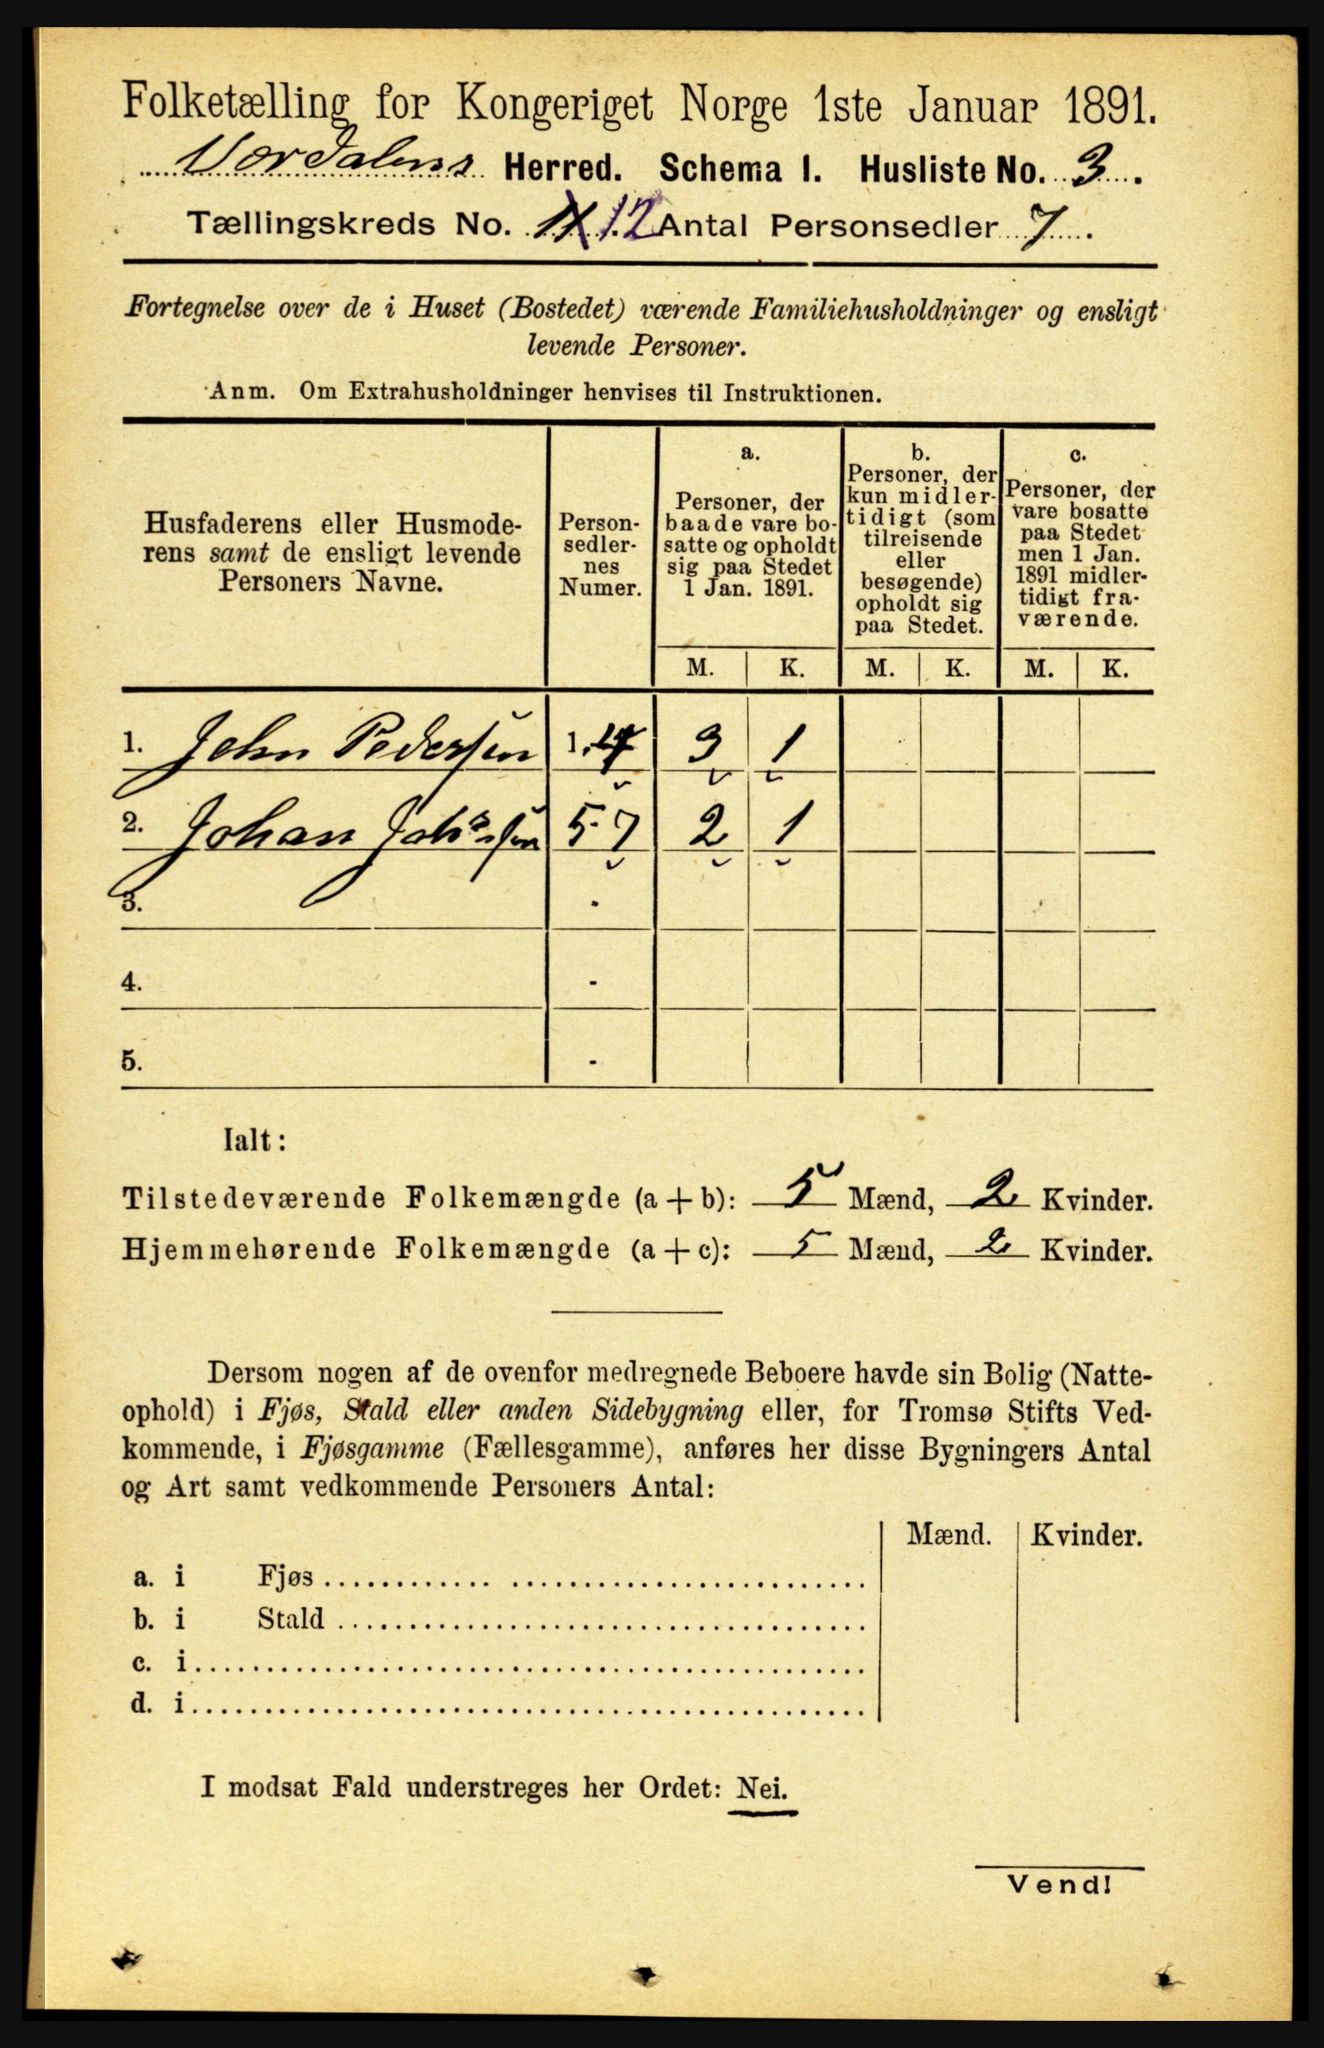 Folketælling for Kongeriget Norge 1ste Januar 1891.
Værdalens Herred. Schema I. Husliste No. 3.
Tællingskreds No. 11 12 Antal Personsedler 7.
Fortegnelse over de i Huset (Bostedet) værende Familiehusholdninger og ensligt
levende Personer.
Anm. Om Extrahusholdninger henvises til Instruktionen.
Husfaderens eller Husmode-
rens samt de ensligt levende
Personers Navne.
Person-
sedler-
nes
Numer.
a.
Personer, der
baade vare bo-
satte og opholdt
sig paa Stedet
1 Jan. 1891.
b.
Personer, der
kun midler-
tidigt (som
tilreisende
eller
besøgende)
opholdt sig
paa Stedet.
c.
Personer, der
vare bosatte
paa Stedet
men 1 Jan.
1891 midler-
tidigt fra-
værende.
M. K. M. K. M. K.
1. John Pedersen 1-4 3 1
2. Johan Johnsen 5-7 2 1
3. -
4. -
5. -
Ialt:
Tilstedeværende Folkemængde (a + b): 5 Mænd, 2 Kvinder.
Hjemmehørende Folkemængde (a + c): 5 Mænd, 2 Kvinder.
Dersom nogen af de ovenfor medregnede Beboere havde sin Bolig (Natte-
ophold) i Fjøs, Stald eller anden Sidebygning eller, for Tromsø Stifts Ved-
kommende, i Fjøsgamme (Fællesgamme), anføres her disse Bygningers Antal
og Art samt vedkommende Personers Antal:
Mænd. Kvinder.
a. i Fjøs
b. i Stald
c. i
d. i
I modsat Fald understreges her Ordet: Nei.
Vend!